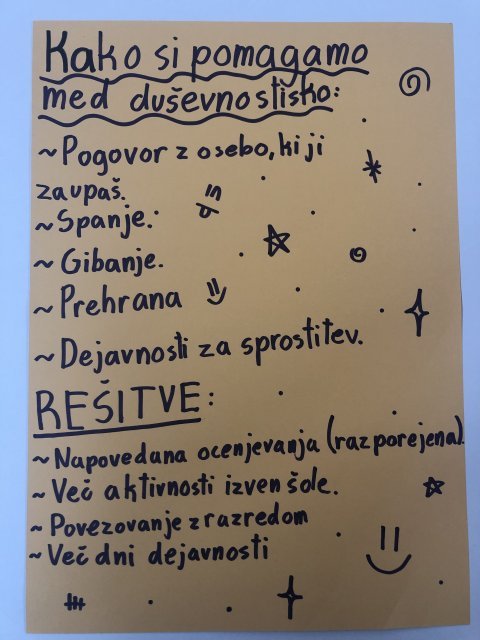 Kako si pomagamo
med duševnostisko:
~Pogovor z osebo, ki ji
zaupaš.
~Spanje.
~Gibanje.
~Prehrana
~Dejavnosti za sprostitev.
REŠITVE:
~Napovedana ocenjevanja (razporejena).
~Več aktivnosti izven šole.
~Povezovanje z razredom
~Več dni dejavnosti